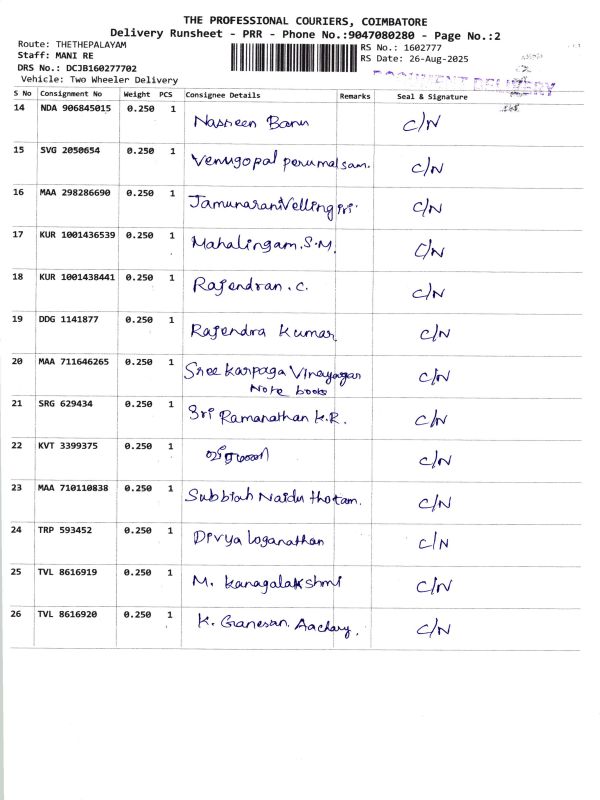 THE PROFESSIONAL COURIERS, COIMBATORE
Delivery Runsheet - PRR - Phone No.:9047080280 - Page No.:2
Route: THETHEPALAYAM
RS No.: 1602777
Staff: MANI RE
RS Date: 26-Aug-2025
DRS No.: DCJB160277702
Vehicle: Two Wheeler Delivery
DOCUMENT DELIVERY
S No Consignment No Weight PCS Consignee Details Remarks Seal & Signature
14 NDA 906845015 0.250 1 Nasreen Banu C/N
15 SVG 2050654 0.250 1 Venugopal perumalsam. C/N
16 MAA 298286690 0.250 1 Jamunarani Vellingiri. C/N
17 KUR 1001436539 0.250 1 Mahalingam.S.M. C/N
18 KUR 1001438441 0.250 1 Rajendran.C. C/N
19 DDG 1141877 0.250 1 Rajendra Kumar C/N
20 MAA 711646265 0.250 1 Sree Karpaga Vinayagar C/N
Note books
21 SRG 629434 0.250 1 Sri Ramanathan K.R. C/N
22 KVT 3399375 0.250 1 C/N
23 MAA 710110838 0.250 1 Subbiah Naidu thotam. C/N
24 TRP 593452 0.250 1 Divya loganathan C/N
25 TVL 8616919 0.250 1 M. Kanagalakshmi C/N
26 TVL 8616920 0.250 1 K. Ganesan. Aachary. C/N